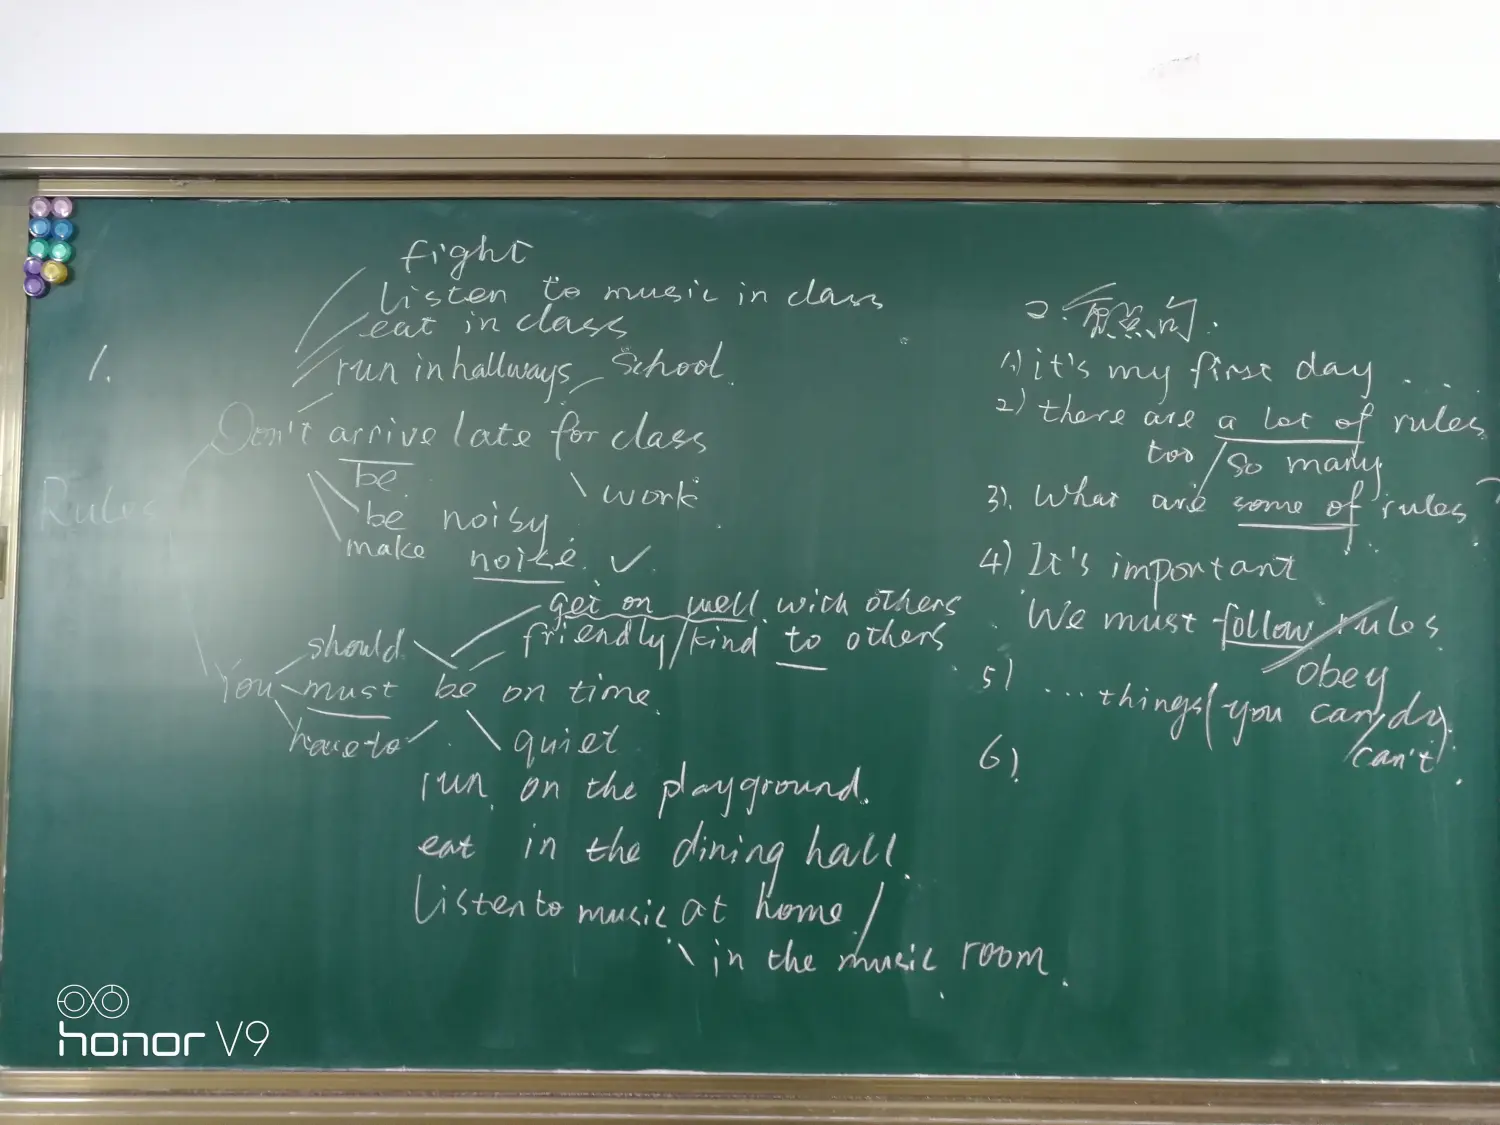 1.
fight
listen to music in class
eat in class
run in hallways
School
Don't arrive late for class
be
work
be noisy
make noise. ✓
Rules
get on well with others
friendly/kind to others
should
You must be on time.
have to
quiet
run on the playground.
eat in the dining hall.
Listen to music at home /
in the music room
2. 点句.
1) it's my first day ....
2) there are a lot of rules
too / so many
3). What are some of rules ?
4) It's important
We must follow rules
obey
5) ...things (you can do).
can't
6)
honor V9